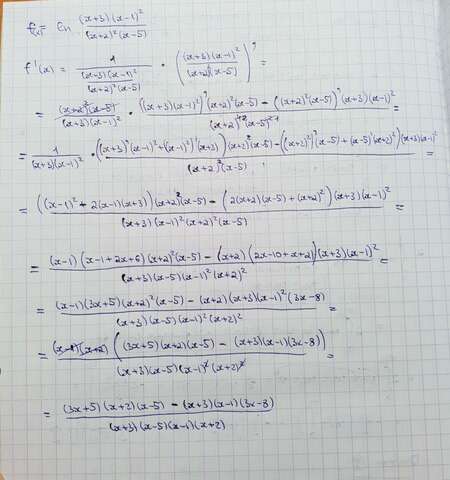 f(x) = ln (x+3)(x-1)² / (x+2)²(x-5)
f'(x) = 1 / ((x+3)(x-1)² / (x+2)²(x-5)) · ((x+3)(x-1)² / (x+2)²(x-5))' =
= (x+2)²(x-5) / (x+3)(x-1)² · ((x+3)(x-1)²)'(x+2)²(x-5) - ((x+2)²(x-5))'(x+3)(x-1)² / (x+2)⁴(x-5)² =
= 1 / (x+3)(x-1)² · ((x+3)'(x-1)² + ((x-1)²)'(x+3))(x+2)²(x-5) - (((x+2)²)'(x-5) + (x-5)'(x+2)²)(x+3)(x-1)² / (x+2)²(x-5) =
= ((x-1)² + 2(x-1)(x+3))(x+2)²(x-5) - (2(x+2)(x-5) + (x+2)²)(x+3)(x-1)² / (x+3)(x-1)²(x+2)²(x-5) =
= (x-1)(x-1+2x+6)(x+2)²(x-5) - (x+2)(2x-10+x+2)(x+3)(x-1)² / (x+3)(x-5)(x-1)²(x+2)² =
= (x-1)(3x+5)(x+2)²(x-5) - (x+2)(x+3)(x-1)²(3x-8) / (x+3)(x-5)(x-1)²(x+2)² =
= (x-1)(x+2)((3x+5)(x+2)(x-5) - (x+3)(x-1)(3x-8)) / (x+3)(x-5)(x-1)²(x+2)² =
= (3x+5)(x+2)(x-5) - (x+3)(x-1)(3x-8) / (x+3)(x-5)(x-1)(x+2)